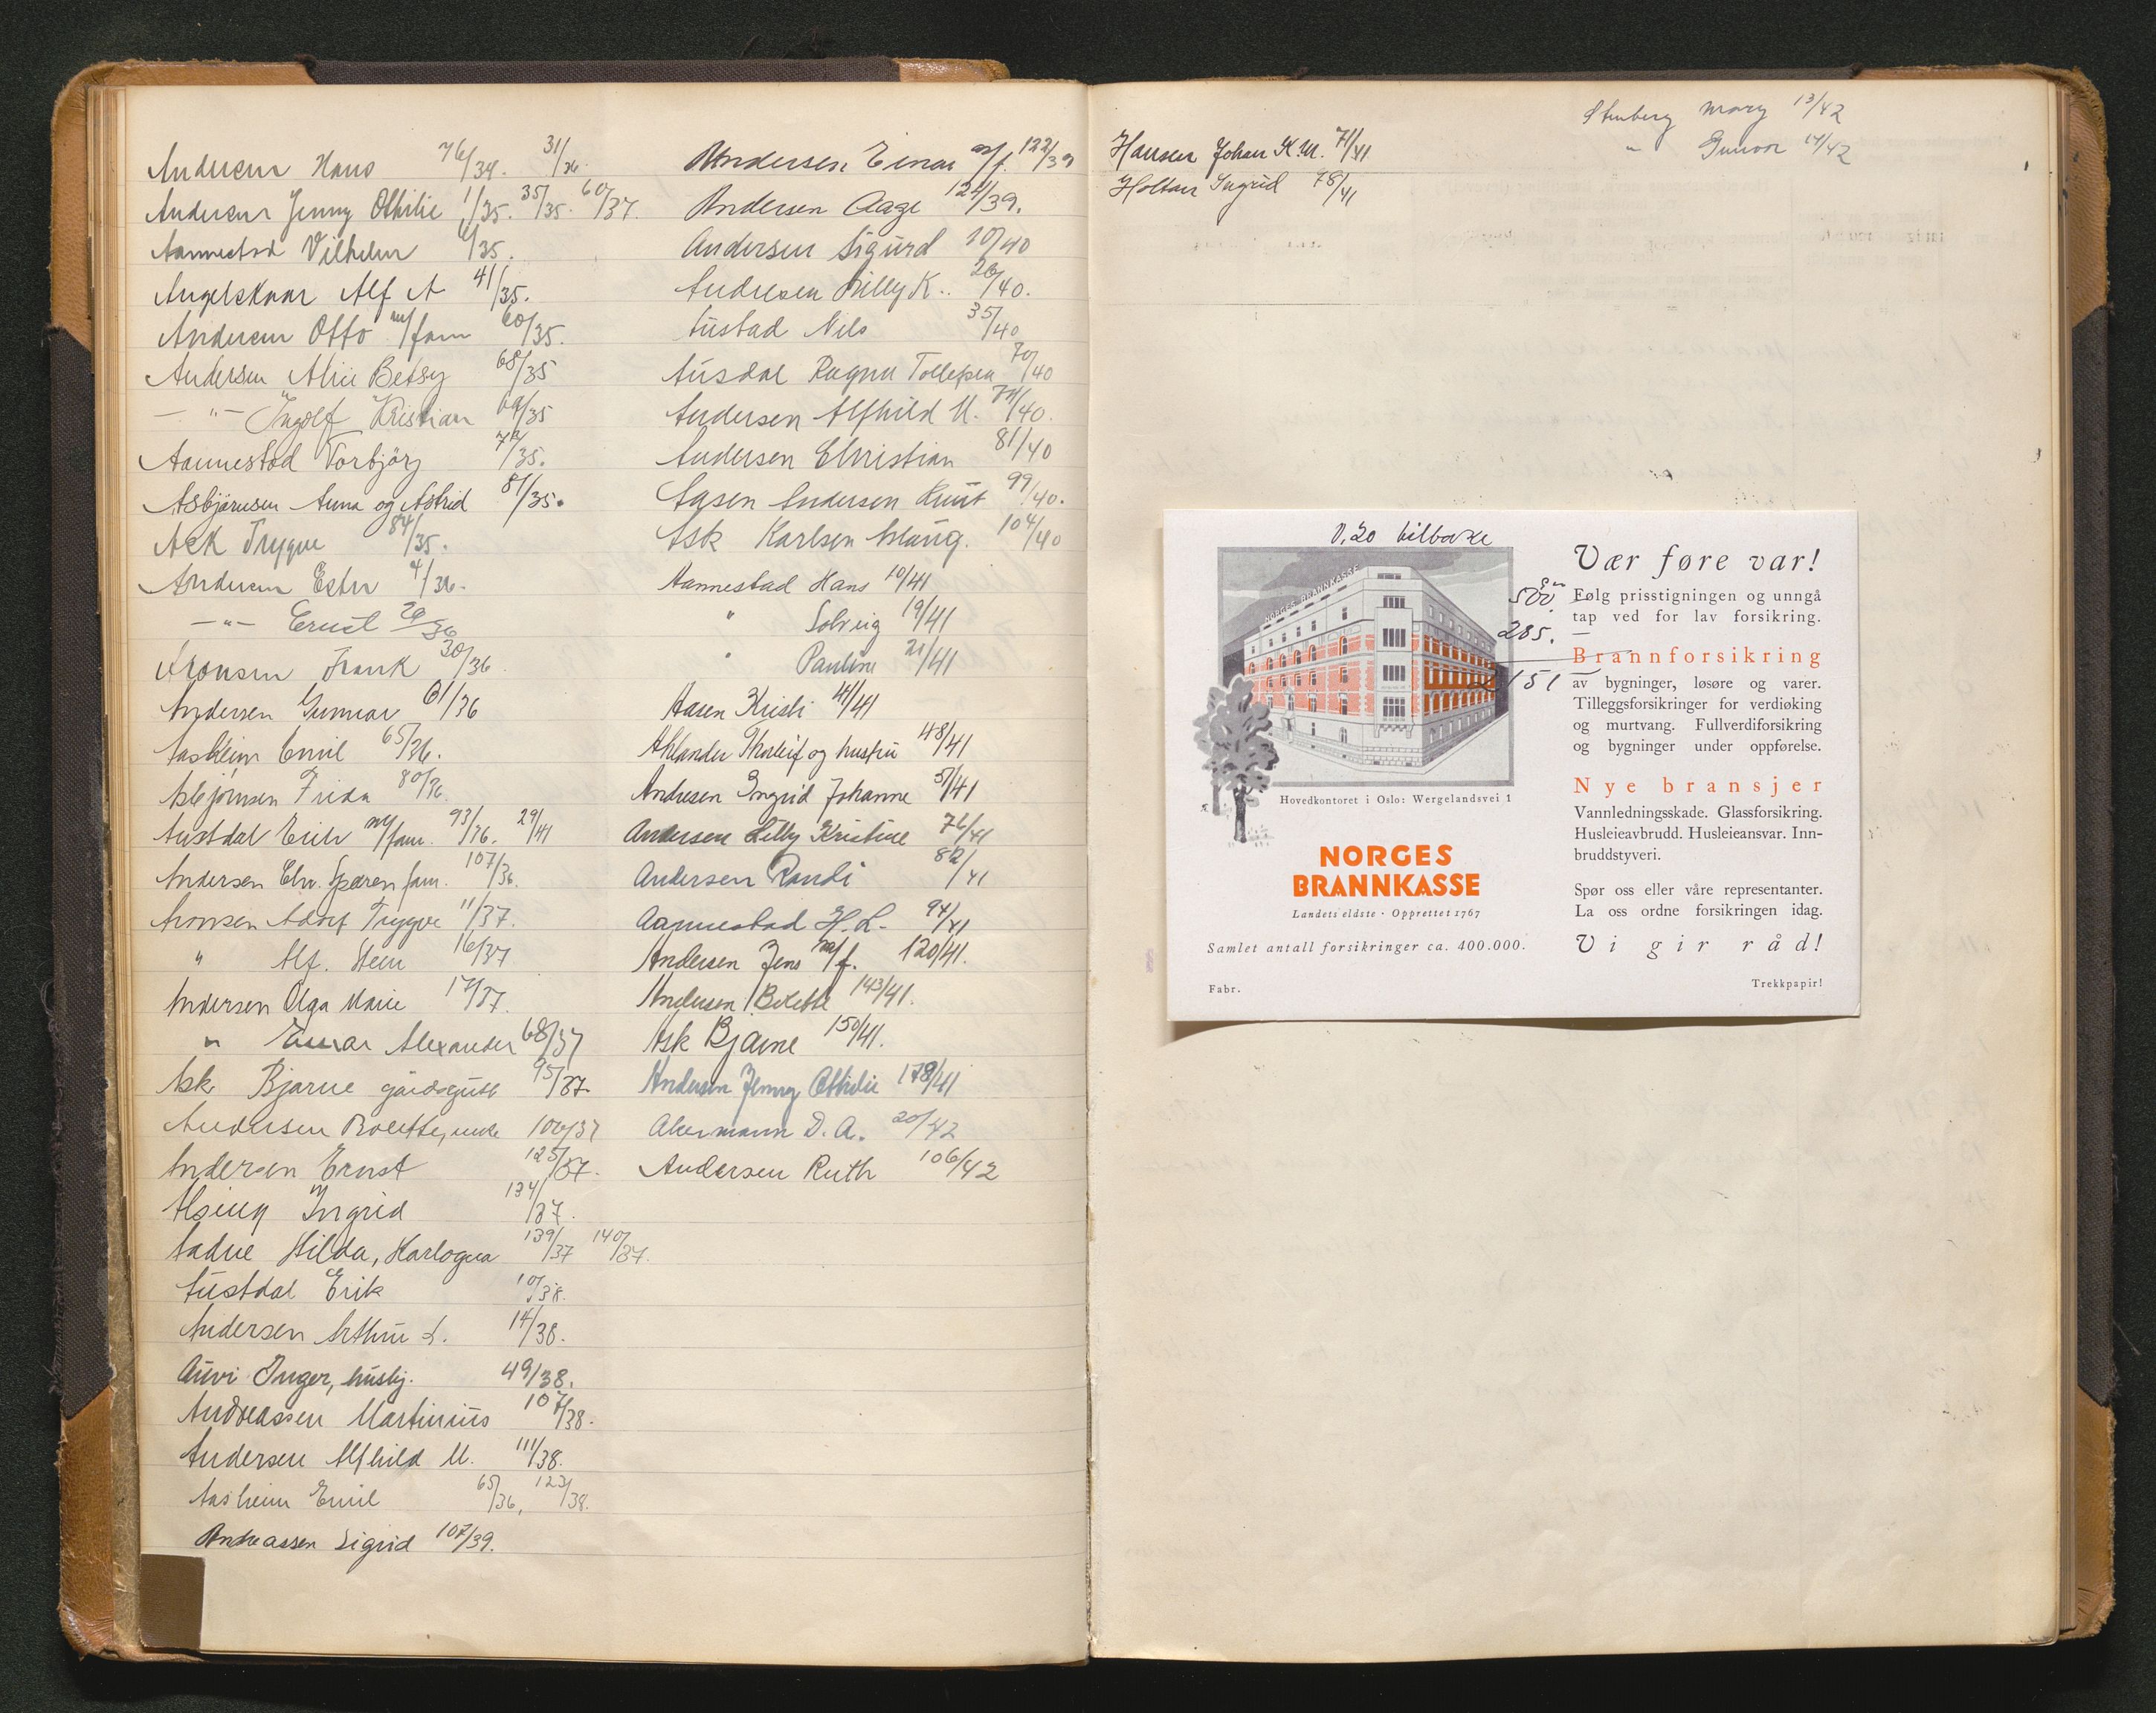 Andersen Hans 76/34. 31/36.
Andersen Jenny Othilie 1/35. 35/35. 60/37.
Aannestad Vilhelm 6/35.
Angelskaar Alf A 41/35.
Andersen Otto m/fam 60/35.
Andersen Alice Betsy 68/35
— " — Ingolf Kristian 69/35
Aannestad Torbjörg 72/35.
Asbjørnsen Anna og Astrid 81/35.
Ask Trygve 84/35.
Andersen Ester 4/36.
— " — Ernst 29/36
Aronsen Frank 30/36.
Andersen Gunnar 61/36
Aasheim Emil 65/36.
Asbjørnsen Frida 80/36
Austdal Erik m/fam. 93/36. 29/41
Andersen Chr. Spæren fam. 107/36.
Aronsen Adolf Trygve 11/37.
" Alf. Steen 16/37
Andersen Olga Marie 17/37.
" Einar Alexander 68/37
Ask Bjarne gårdsgutt 95/37.
Andersen Bolette, enke 100/37
Andersen Ernst 125/37.
Alsing Ingrid 134/37.
Aadne Hilda, Harlogva 139/37 140/37.
Austdal Erik 10/38.
Andersen Arthur L. 14/38.
Auvi Inger, hushj. 49/38.
Andreassen Martinius 107/38.
Andersen Alfhild M. 111/38.
Aasheim Emil 65/36, 123/38.
Andreassen Sigrid 107/39.
Andersen Einar m/f. 122/39
Andersen Aage 124/39.
Andersen Sigurd 10/40
Andresen Lilly K.. 26/40.
Austad Nils 35/40
Ausdal Ragna Tollefsen 70/40
Andersen Alfhild M. 74/40.
Andersen Christian 81/40
Aasen Andersen Knut 99/40.
Ask Karlsen Aslaug. 104/40
Aannestad Hans 10/41
" Solveig 19/41
" Pauline 21/41
Aasen Kristi 41/41
Ahlander Thorleif og hustru 48/41
Andresen Ingrid Johanne 57/41
Andersen Lilly Kristine 76/41
Andersen Randi 82/41
Aannestad H. L. 94/41
Andersen Jens m/f. 120/41.
Andersen Bolette 143/41.
Ask Bjarne 150/41.
Andersen Jenny Othilie 178/41
Akermann D. A. 20/42
Andersen Ruth 106/42
Stenberg Mary 13/42
" Gunvor 14/42
Hansen Johan K. M. 71/41
Holtan Ingrid 78/41
0,20 tilbake
500
285. —
151 —
NORGES BRANNKASSE
Hovedkontoret i Oslo: Wergelandsvei 1
NORGES
BRANNKASSE
Landets eldste · Opprettet 1767
Samlet antall forsikringer ca. 400.000.
Fabr.
Vær føre var!
Følg prisstigningen og unngå
tap ved for lav forsikring.
Brannforsikring
av bygninger, løsøre og varer.
Tilleggsforsikringer for verdiøking
og murtvang. Fullverdiforsikring
og bygninger under oppførelse.
Nye bransjer
Vannledningsskade. Glassforsikring.
Husleieavbrudd. Husleieansvar. Inn-
bruddstyveri.
Spør oss eller våre representanter.
La oss ordne forsikringen idag.
Vi gir råd!
Trekkpapir!